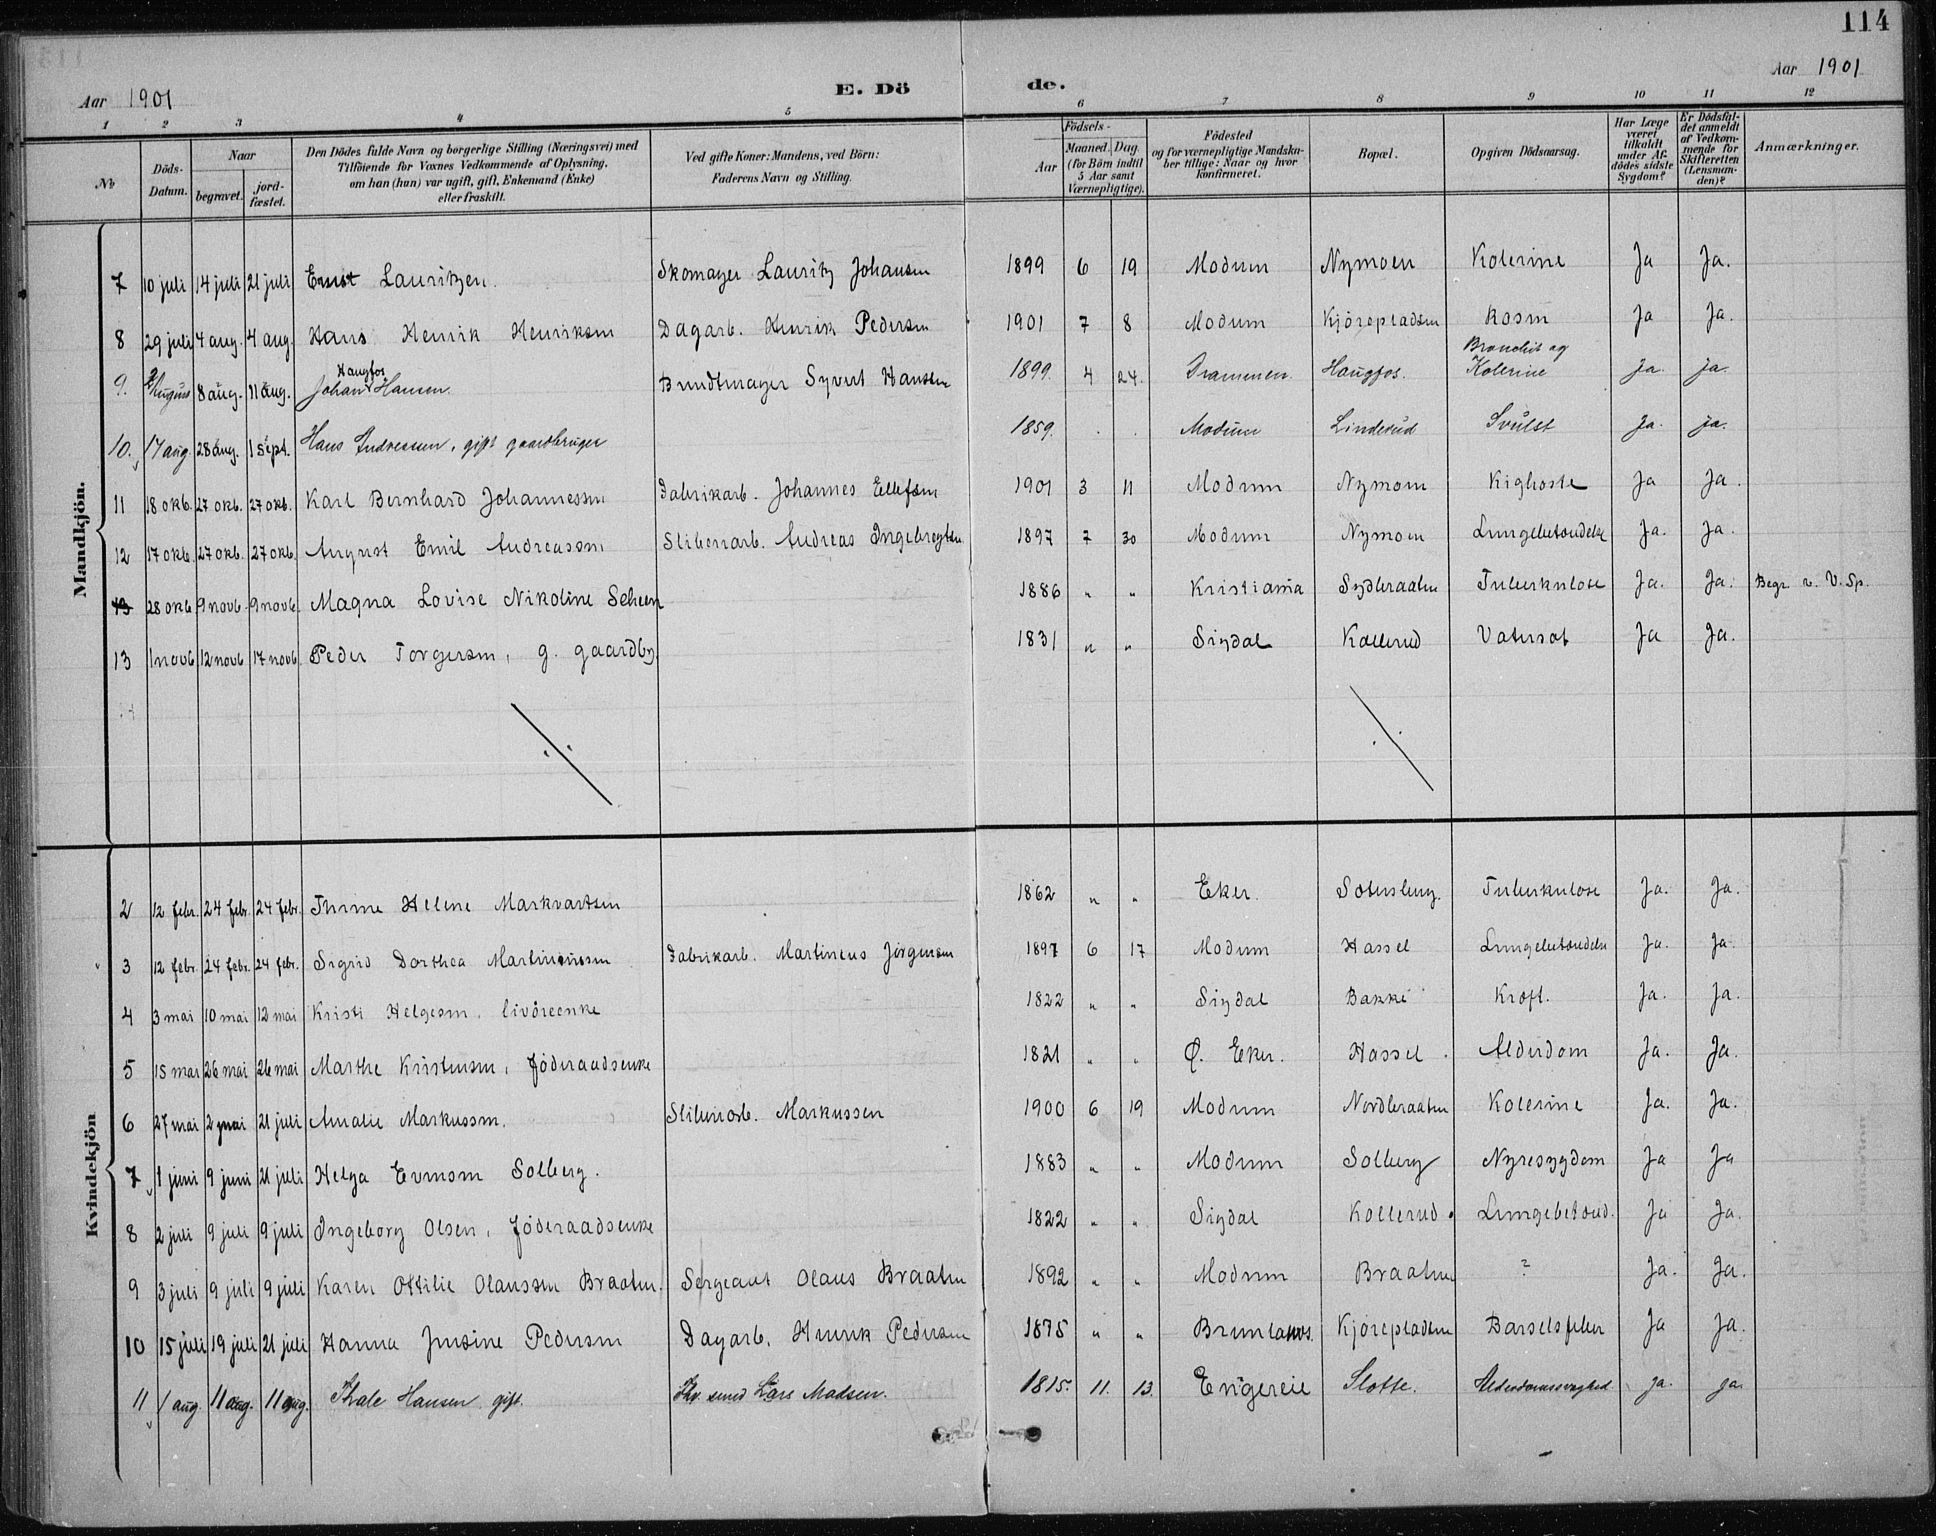 114
Aar 1901 E. Dö de. Aar 1901
1 2 3 4 5 6 7 8 9 10 11 12
No
Döds-Datum.
Naar begravet. jord-fæstet.
Den Dödes fulde Navn og borgerlige Stilling (Næringsvei) med Tilföiende for Voxnes Vedkommende af Oplysning, om han (hun) var ugift, gift, Enkemand (Enke) eller fraskilt.
Ved gifte Koner: Mandens, ved Börn: Faderens Navn og Stilling.
Födsels- Aar Maaned. Dag (for Börn indtil 5 Aar samt Værnepligtige).
Födested og for værnepligtige Mandska-ber tillige: Naar og hvor konfirmeret.
Bopæl.
Opgiven Dödsaarsag.
Har Læge været tilkaldt under Af-dödes sidste Sygdom?
Er Dödsfal-det anmeldt af Vedkom-mende for Skifteretten (Lensman-den)?
Anmærkninger.
Mandkjön.
7 10 juli 14 juli 21 juli Ernst Lauritzen. Skomager Lauritz Johansen 1899 6 19 Modum Nymoen Kolerine Ja Ja.
8 29 juli 4 aug. 4 aug. Hans Henrik Henriksen Dagarb. Henrik Pedersen 1901 7 8 Modum Kjörepladsen Kosm Ja Ja.
9. 8 aug. 11 aug. Johan Haugfos Hansen. Bundtmager Syvert Hansen 1899. 4 24. Drammen. Haugfos. Bronchit og Kolerine Ja. ja.
10. 17 aug. 28 aug. 1 sept. Hans Andreassen, gift gaardbruger 1859. Modum Linderud Svulst Ja. ja.
11 18 okb. 27 okb. 27 okb. Karl Bernhard Johannessen Fabrikarb. Johannes Ellefsen 1901 3 11 Modum Nymoen Kighoste Ja Ja.
12 17 okb. 27 okb. 27 okb. August Emil Andreassen Sliberiarb. Andreas Ingebregtsen 1897 7 30 Modum Nymoen Lungebetændelse Ja. Ja.
13 28 okb 9 novb. 9 novb. Magna Lovise Nikoline Scheen 1886 " " Kristiania Sydbraaten Tuberkulose Ja. Ja. Begr. v. V. Sp.
13 1 novb 12 novb 17 novb. Peder Torgersen, g. gaardbr. 1831 " " Sigdal Kollerud Vatersot Ja Ja.
Kvindekjön
2 12 febr. 24 febr. 24 febr. Thrine Helene Markvartsen 1862 " " Eker Solusberg. Tuberkulose Ja. Ja.
3 12 febr. 24 febr. 24 febr. Sigrid Dorthea Martiniussen Fabrikarb. Martineus Jörgensen 1897 6 17 Modum Hassel Lungebetændelse Ja. Ja.
4 3 mai 10 mai 12 mai Kristi Helgesen, livöreenke 1822 " " Sigdal Bakke Kræft. Ja. Ja.
5 15 mai 26 mai 26 mai Marthe Kristensen, föderaadsenke 1821 " " Ø. Eker. Hassel. Alderdom Ja. Ja.
6 27 mai 2 juni 21 juli Amalie Markussen. Sliberiarb. Markussen 1900 6 19 Modum Nordbraaten Kolerine Ja. Ja.
7 1 juni 9 juni 21 juli Helga Evensen Solberg. 1883 " " Modum Solberg Nyresygdom Ja Ja
8 2 juli 9 juli 9 juli Ingeborg Olsen, föderaadsenke 1822 " " Sigdal Kollerud. Lungebetænd. Ja Ja.
9 3 juli 9 juli 9 juli Karen Ottilie Olaussen Braaten. Sergeant Olaus Braaten 1892 " " Modum Braaten ? Ja. Ja.
10 15 juli 19 juli 21 juli Hanna Jensine Pedersen Dagarb. Henrik Pedersen 1875 " " Brunlanes. Kjörepladsen Barselfeber Ja Ja.
11 1 aug. 11 aug. 11 aug. Thale Hansen, gift. smed Lars Madsen. 1815. 11. 13. Engereie Slotte. Alderdomssvaghed ja. ja.